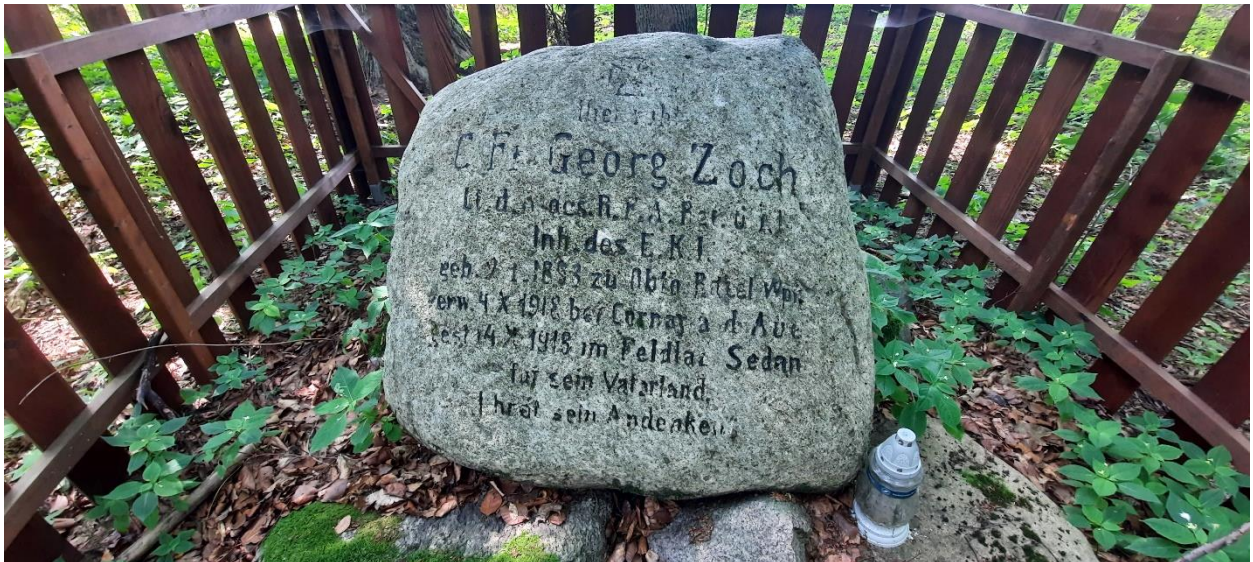 Hier ruht
C. Fr. Georg Zoch
Lt. d. R. des R.F.A. Rgt.
Inh. des E.K.I.
geb. 1883 zu Abtn. Rettel Wpr.
verw. 4.X.1918 bei Cornay a. d. Aire
gest. 14.X.1918 im Feldlaz. Sedan
für sein Vaterland.
Ehret sein Andenken!